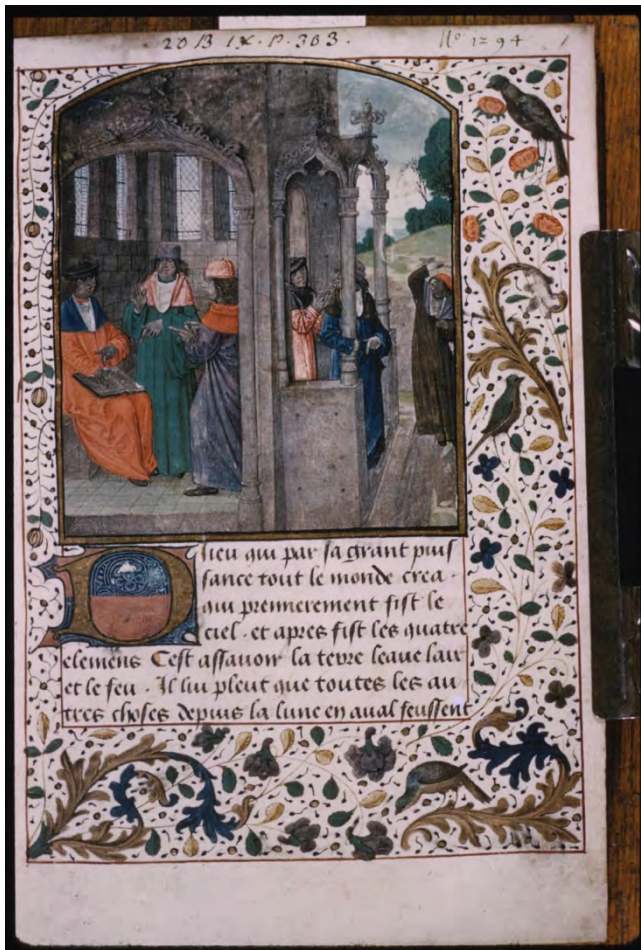 20 B IX. P. 303.
No 1294
Dieu qui par sa grant puis
sance tout le monde crea .
qui premierement fist le
ciel . et apres fist les quatre
elemens Cest assavoir la terre leaue lair
et le feu . Il lui pleut que toutes les au
tres choses depuis la lune en aval feussent